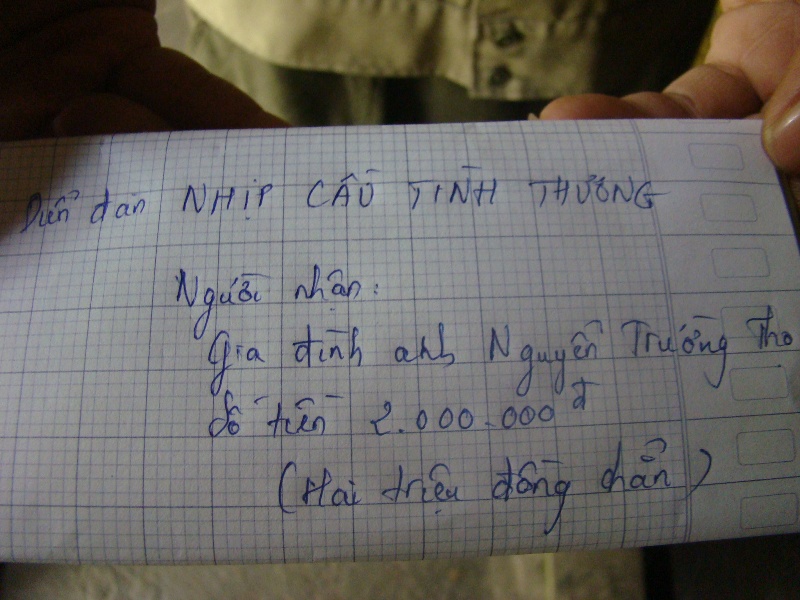 Diễn đàn NHỊP CẦU TÌNH THƯƠNG
Người nhận:
Gia đình anh Nguyễn Trường Thọ
Số tiền 2.000.000đ
(Hai triệu đồng chẵn)